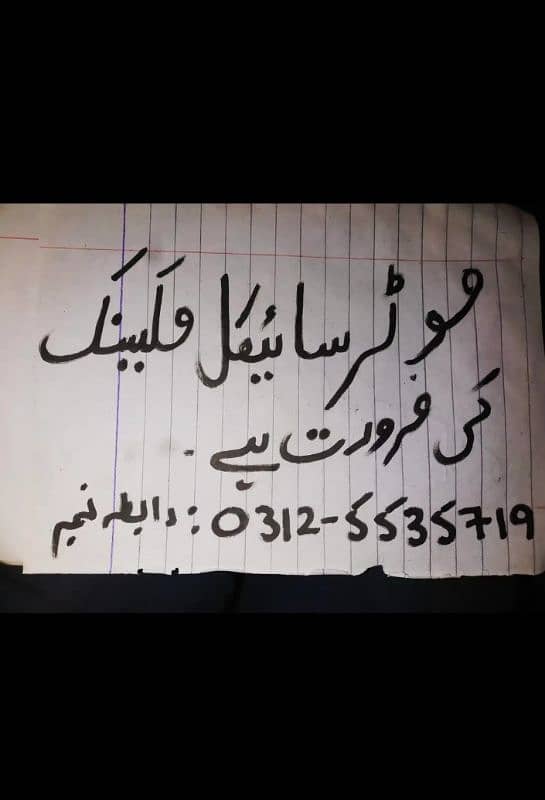 موٹر سائیکل مکینک
کی ضرورت ہے۔
رابطہ نمبر: 0312-5535719